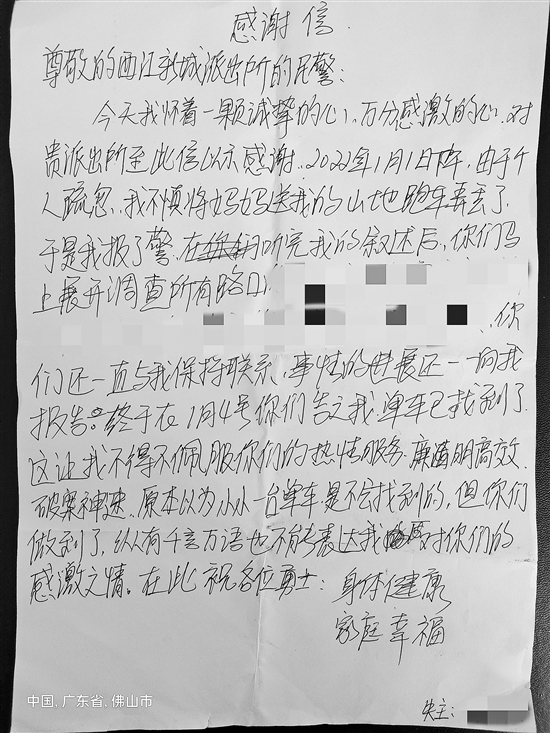 感谢信
尊敬的西江新城派出所的民警：
今天我怀着一颗诚挚的心，万分感激的心，对
贵派出所至此信以示感谢。2022年1月1日下午，由于个
人疏忽，我不慎将妈妈送我的山地跑车弄丢了，
于是我报了警，在听完我的叙述后，你们马
上展开调查所有路口
、你
们还一直与我保持联系，事情的进展还一一向我
报告。终于在1月4号你们告之我，单车已找到了。
这让我不得不佩服你们的热情服务，廉洁明高效，
破案神速，原本以为小小一台单车是不会找到的，但你们
做到了，纵有千言万语也不能表达我对你们的
感激之情。在此祝各位勇士：身体健康
家庭幸福
失主：
中国，广东省，佛山市